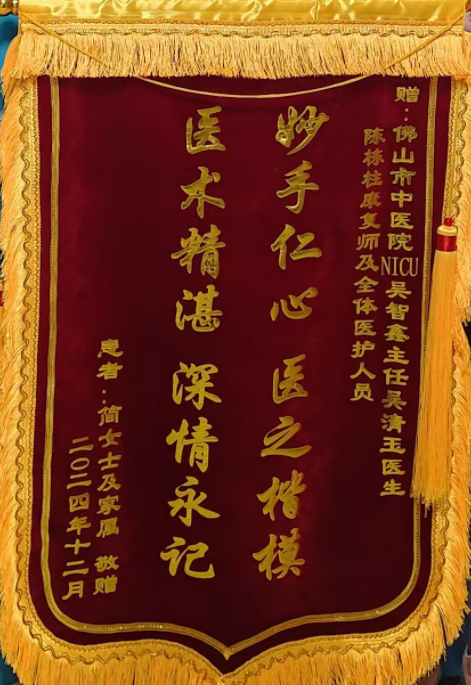 赠：佛山市中医院NICU吴智鑫主任吴清玉医生
陈栋柱康复师及全体医护人员
妙手仁心 医之楷模
医术精湛 深情永记
患者：简女士及家属 敬赠
二〇二四年十二月